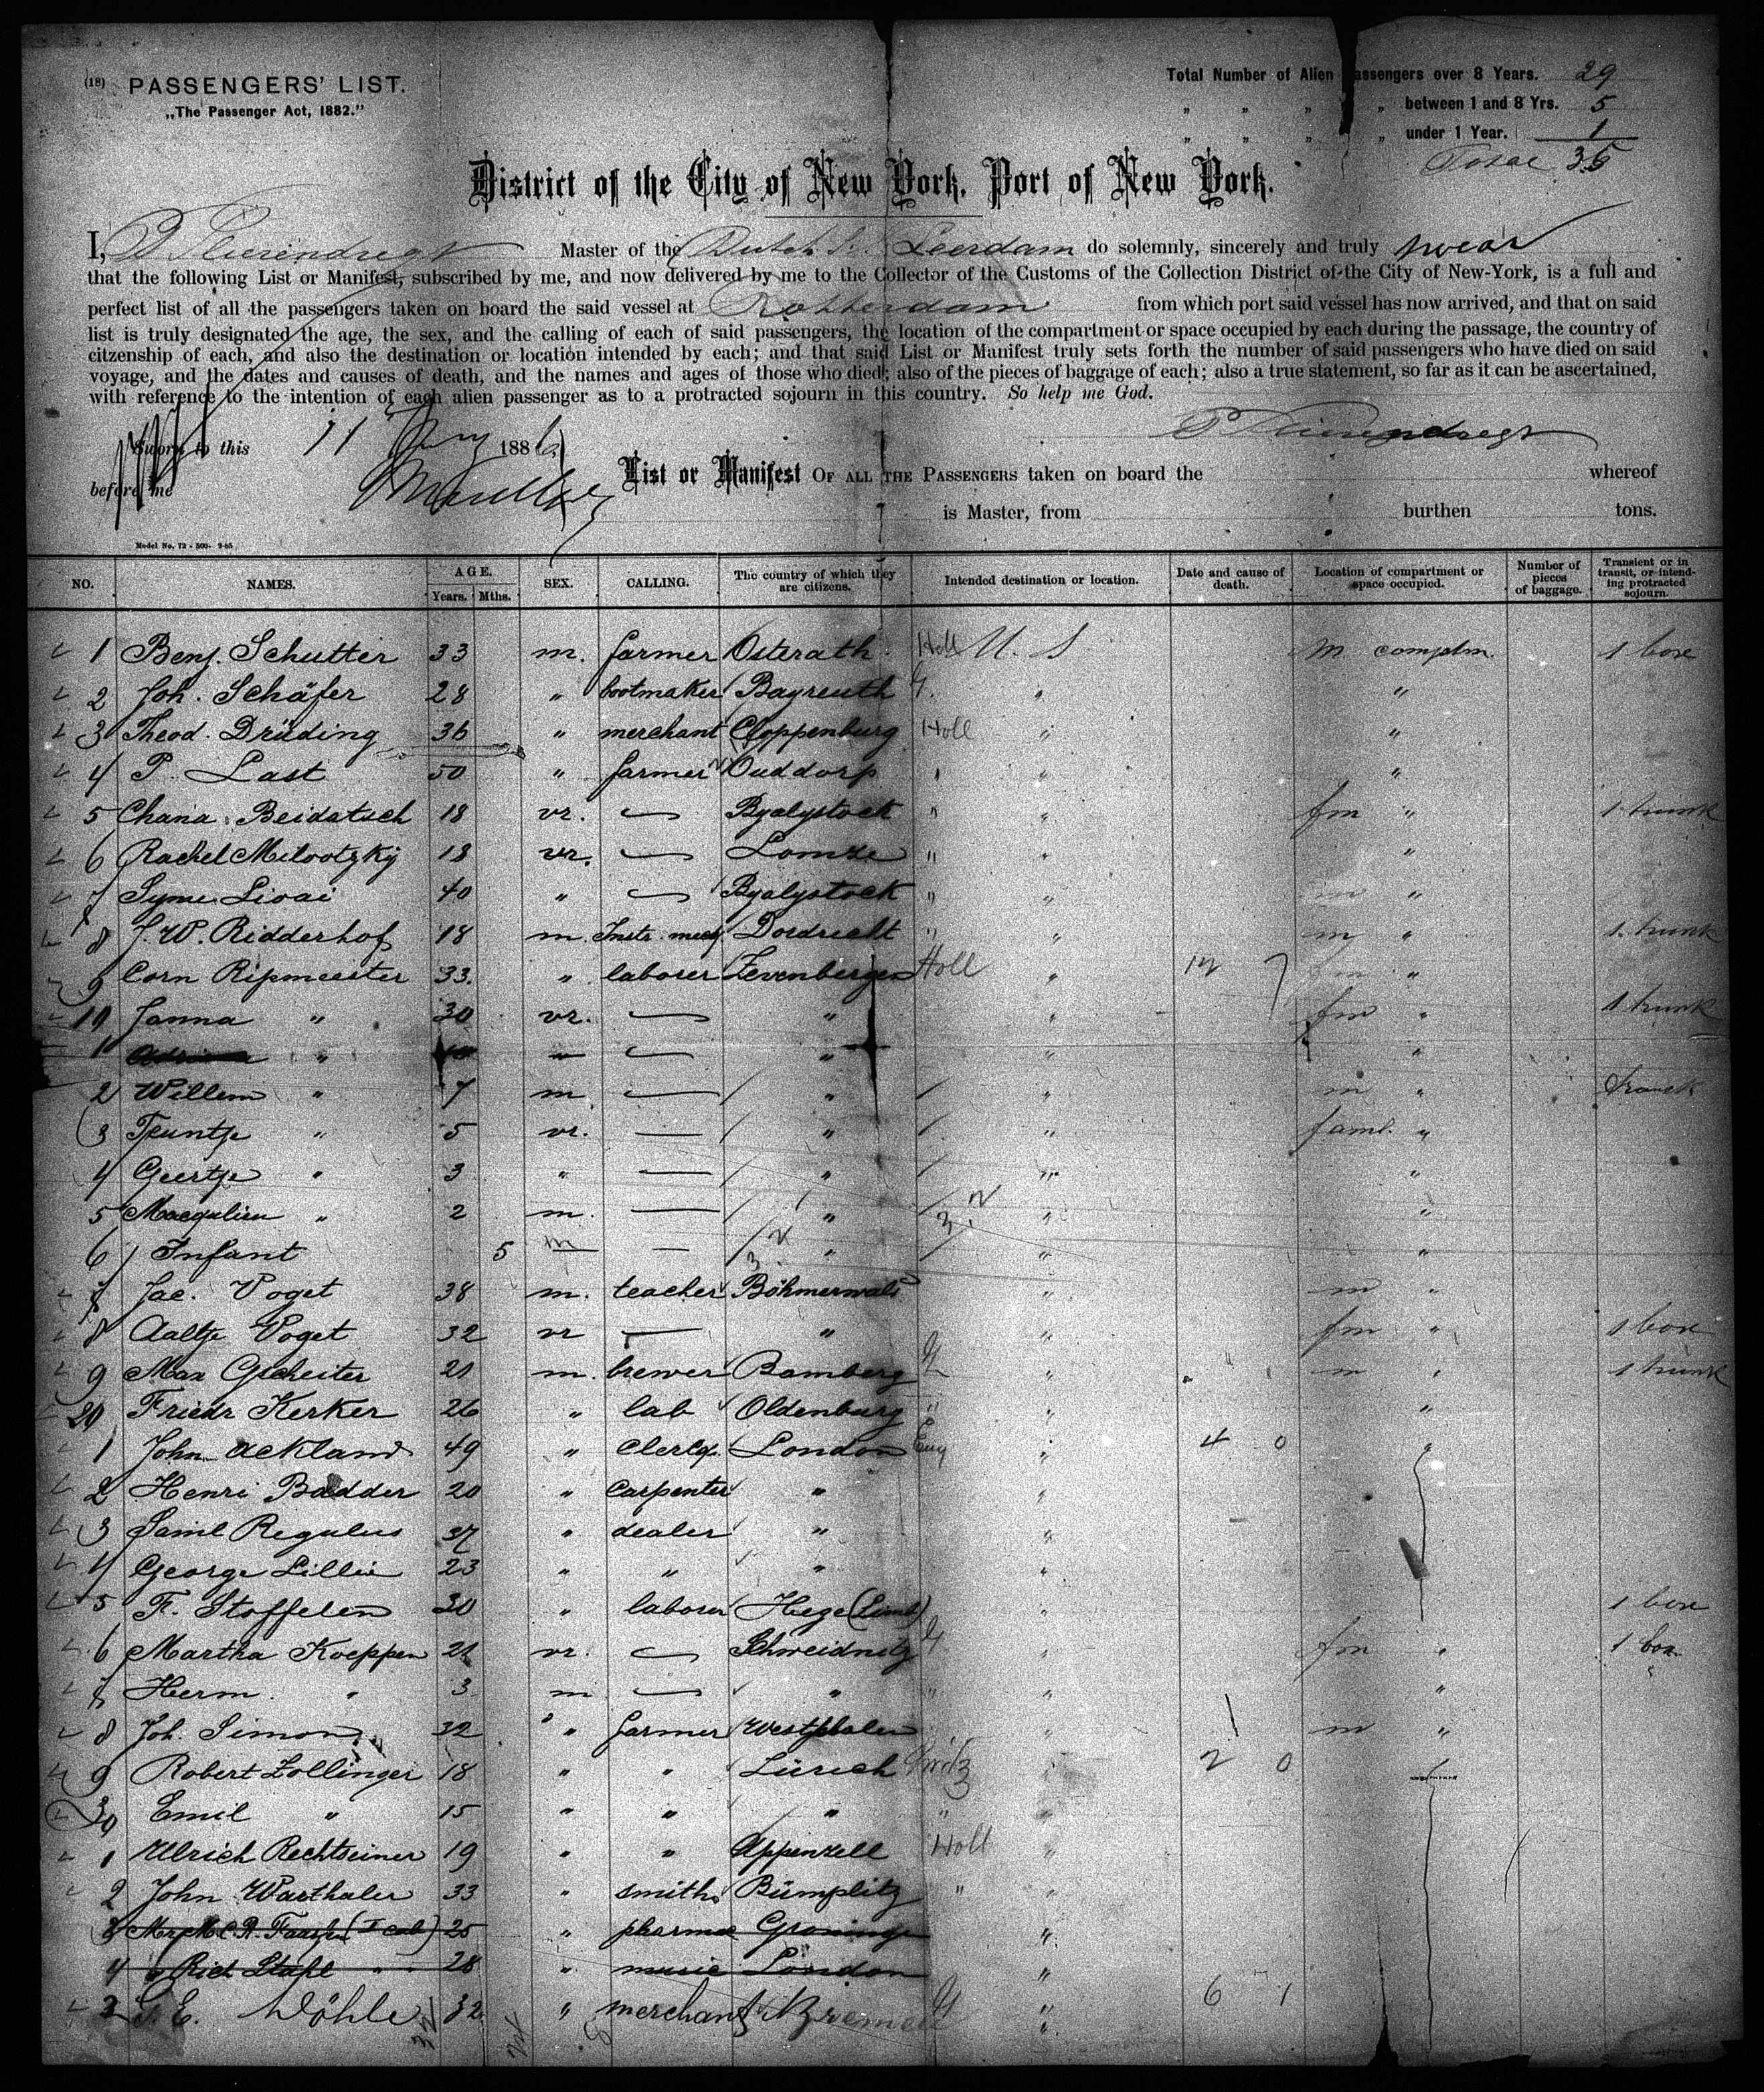 (18) PASSENGERS' LIST.
„The Passenger Act, 1882."
Total Number of Alien Passengers over 8 Years. 29
„ „ „ „ between 1 and 8 Yrs. 5
„ „ „ „ under 1 Year. 1
Total 35
District of the City of New York, Port of New York.
I, Master of the Dutch Leerdam do solemnly, sincerely and truly swear
that the following List or Manifest, subscribed by me, and now delivered by me to the Collector of the Customs of the Collection District of the City of New-York, is a full and
perfect list of all the passengers taken on board the said vessel at Rotterdam from which port said vessel has now arrived, and that on said
list is truly designated the age, the sex, and the calling of each of said passengers, the location of the compartment or space occupied by each during the passage, the country of
citzenship of each, and also the destination or location intended by each; and that said List or Manifest truly sets forth the number of said passengers who have died on said
voyage, and the dates and causes of death, and the names and ages of those who died; also of the pieces of baggage of each; also a true statement, so far as it can be ascertained,
with reference to the intention of each alien passenger as to a protracted sojourn in this country. So help me God.
Sworn to this 11 1886
before me
List or Manifest OF ALL THE PASSENGERS taken on board the whereof
is Master, from burthen tons.
Model No. 72 - 500- 9-85
NO. NAMES. AGE. Years. Mths. SEX. CALLING. The country of which they are citizens. Intended destination or location. Date and cause of death. Location of compartment or space occupied. Number of pieces of baggage. Transient or in transit, or intending protracted sojourn.
1 Benj. Schutter 33 m. farmer Osterath Holl U. S m complm. 1 box
2 Joh. Schäfer 28 „ bootmaker Bayreuth G. „ „
3 Theod. Drüding 36 „ merchant Cloppenburg Holl „ „
4 P. Last 50 „ farmer Ouddorp „ „ „
5 Chana Beidatsch 18 vr. — Byalystock „ „ fm „ 1 trunk
6 Rachel Milootzky 18 vr. — Lomze „ „ „
7 Syme Livai 40 „ — Byalystock „ „ m „
8 J. W. Ridderhof 18 m. Instr. Dordrecht „ „ m „ 1 trunk
9 Corn Ripmeester 33. „ laborer Zevenbergen Holl „ 12 7 fm „
10 Janna „ 30 vr. — „ „ fm „ 1 trunk
1 „ „ — „ „ „
2 Willem „ 7 m — „ „ m „
3 Teuntje „ 5 vr. — „ „ faml. „
4 Geertje „ 3 „ — „ „ „
5 „ 2 m. — „ „ „
6 Infant 5 m — „ „ „
7 Jac. Voget 38 m. teacher Böhmerwald „ m „
8 Aaltje Voget 32 vr — „ „ fm „ 1 box
9 Max Gscheiter 21 m. brewer Bamberg G „ m „ 1 trunk
20 Friedr Kerker 26 „ lab Oldenburg „ „ „
1 John Ackland 49 „ Clercq. London Eng „ 4 0 „
2 Henri Badder 20 „ Carpenter „ „
3 Saml Regulus 37 „ dealer „ „
4 George Lillie 23 „ „ „ „
5 F. Stoffelen 30 „ laborer Hege (Limb) „ 1 box
6 Martha Koeppen 21 vr. — Schweidnitz G „ fm „ 1 box
7 Herm. „ 3 m — „ „ „ „
8 Joh. Simon 32 „ farmer Westphalen „ 1 m „
9 Robert Zollinger 18 „ „ Zürich Switz „ 2 0
30 Emil „ 15 „ „ „ „ „
1 Ulrich Rechtseiner 19 „ „ Appenzell Holl „
2 John Warthaler 33 „ smith Bümplitz „ „
3 25 „ pharmac Groninge „
4 „ Rich Stahl „ 28 „ music London „
3 E. Wöhle 32 „ merchant Bremen G „ 6 1